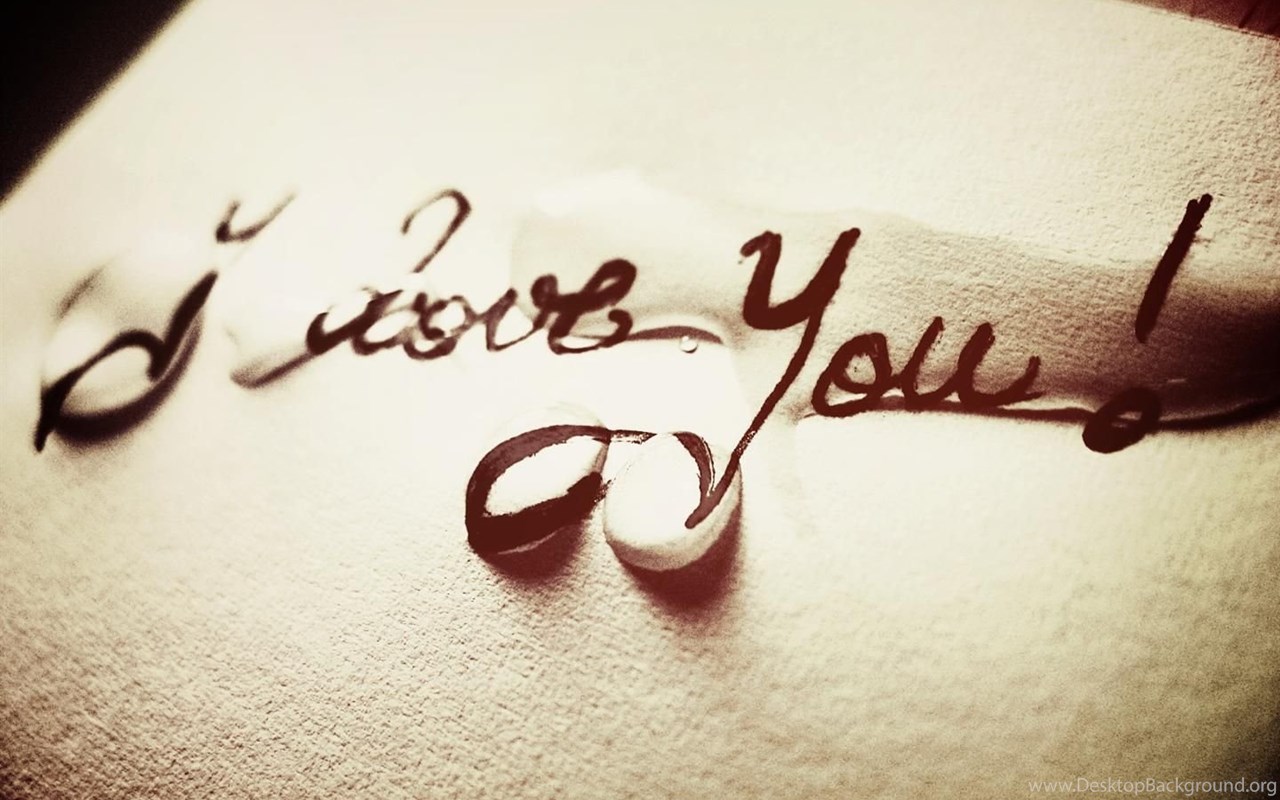 I Love You!
www.DesktopBackground.org